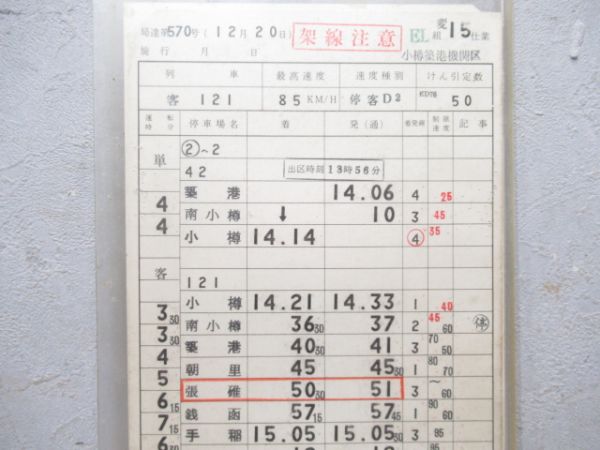 局達第570号(12月20日) 架線注意 EL 変組15仕業
施行 月 日 小樽築港機関区
列 車 最高速度 速度種別 けん引定数
客 121 85KM/H 停客D2 KD76 50
運転時分 停車場名 着 発(通) 着発線 制限速度 記事
単 ②~2
42 出区時刻13時56分
築港 14.06 4 25
4 南小樽 ↓ 10 3 45
4 小樽 14.14 ④ 35
客 121
小樽 14.21 14.33 1 40
3 30 南小樽 36 30 37 2 45 60 停
3 30 築港 40 30 41 3 70 50
4 朝里 45 45 30 1 80 70
5 張碓 50 30 51 3 ~ 60
6 15 銭函 57 15 57 45 1 90 60
7 15 手稲 15.05 15.05 30 3 95
6 30